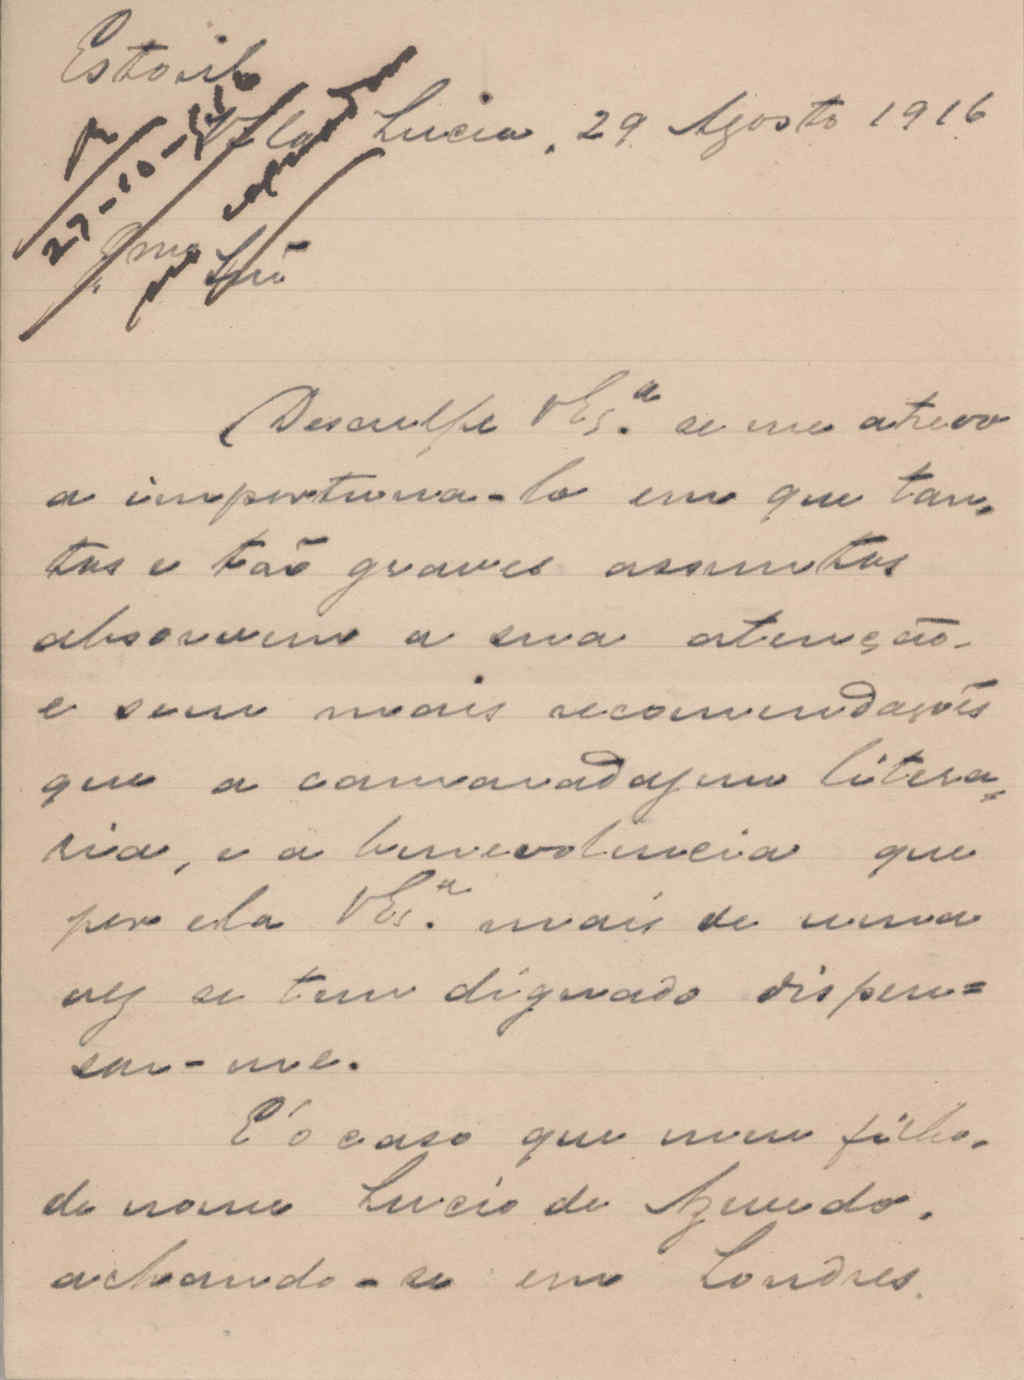 Estoril
Villa Lucia, 29 Agosto 1916
27-10-916
Exmo Snr
Desculpe V Ex.ª se me atrevo
a importuna-lo em que tan-
tos e tão graves assuntos
absorvem a sua atenção.
e sem mais recomendações
que a camaradagem litera-
ria, e a benevolencia que
por ela V Ex.ª mais de uma
vez se tem dignado dispen=
sar-me.
E' o caso que meu filho,
de nome Lucio de Azevedo,
achando-se em Londres